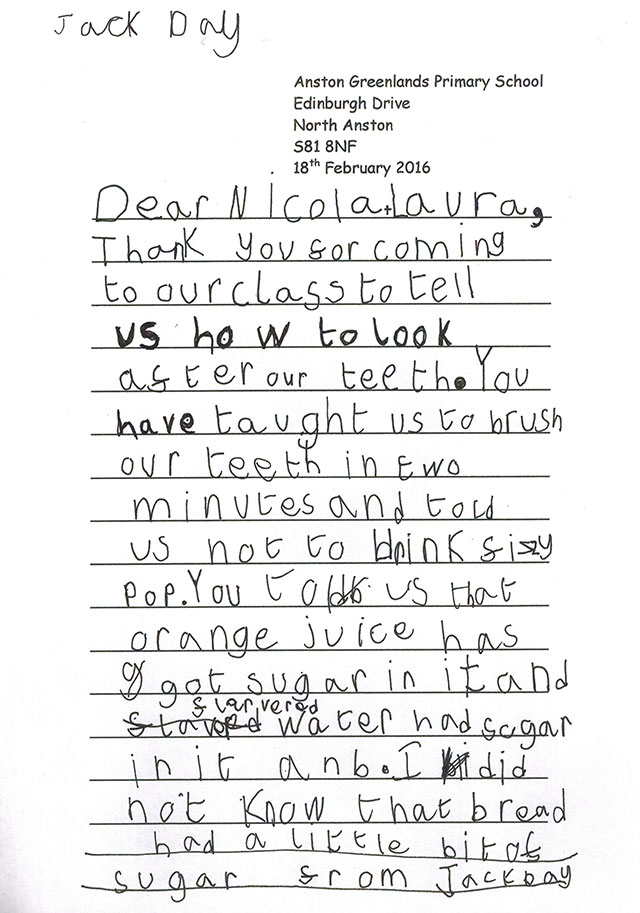 Jack Day
Anston Greenlands Primary School
Edinburgh Drive
North Anston
S81 8NF
18th February 2016
Dear Nicola+Laura,
Thank you for coming
to our class to tell
us how to look
after our teeth. You
have taught us to brush
our teeth in two
minutes and told
us not to drink fizy
pop. You told us that
orange juice has
got sugar in it and
flarvered
water had sugar
in it anb. I did
not know that bread
had a little bit of
sugar from Jackday